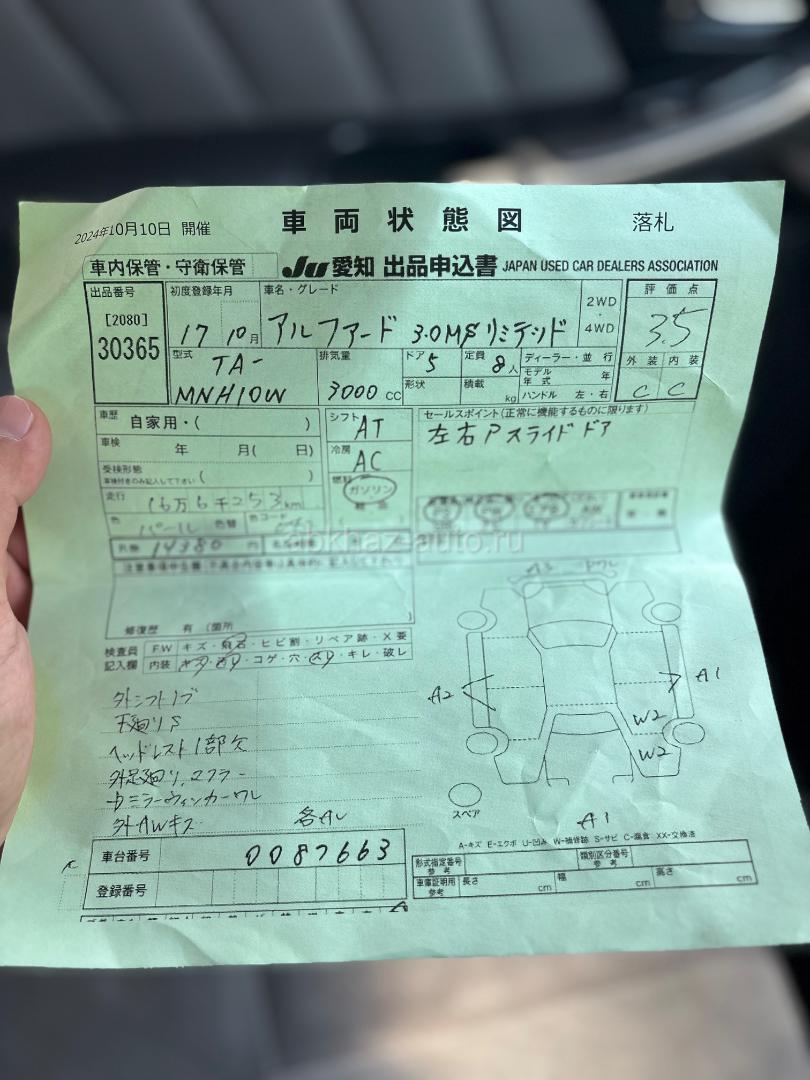 2024年10月10日 開催 車両状態図 落札
車内保管・守衛保管 JU 愛知 出品申込書 JAPAN USED CAR DEALERS ASSOCIATION
出品番号 [2080] 30365
初度登録年月 17 10月
車名・グレード アルファード 3.0MSリミテッド
2WD・4WD
評価点 3.5
外装 内装
C C
型式 TA-MNH10W
排気量 3000 CC
ドア 5 定員 8人 ディーラー・並行
モデル年式 年
形状 積載 kg ハンドル 左・右
車歴 自家用・( )
車検 年 月( 日)
受検形態
車検付きのみ記入して下さい ( )
走行 16万6千253km
色 パール 色替 色コード
14380 円
シフト AT
冷房 AC
燃料 ガソリン
セールスポイント(正常に機能するものに限ります)
左右Pスライドドア
abkhaz-auto.ru
修復歴 有 (箇所 )
検査員記入欄 FW キズ・飛石・ヒビ割・リペア跡・X要
内装 コゲ・穴・キレ・破レ
外シフトノブ
下廻りS
ヘッドレスト1部欠
外足廻り、マフラー
ミラーウィンカーワレ
外AWキズ 各AL
A3 ワレ
A2 A1
W2
W2
スペア
A1
A-キズ E-エクボ U-凹み W-補修跡 S-サビ C-腐食 XX-交換済
車台番号 0087663
登録番号
形式指定番号 参考 類別区分番号 参考
車庫証明用 参考 長さ cm 幅 cm 高さ cm